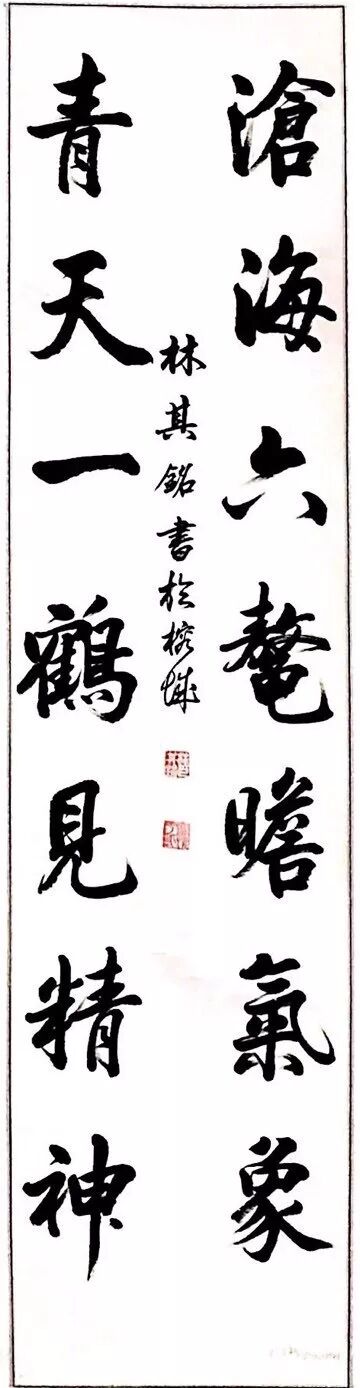 滄海六鼇瞻氣象
青天一鶴見精神
林其銘書於榕城